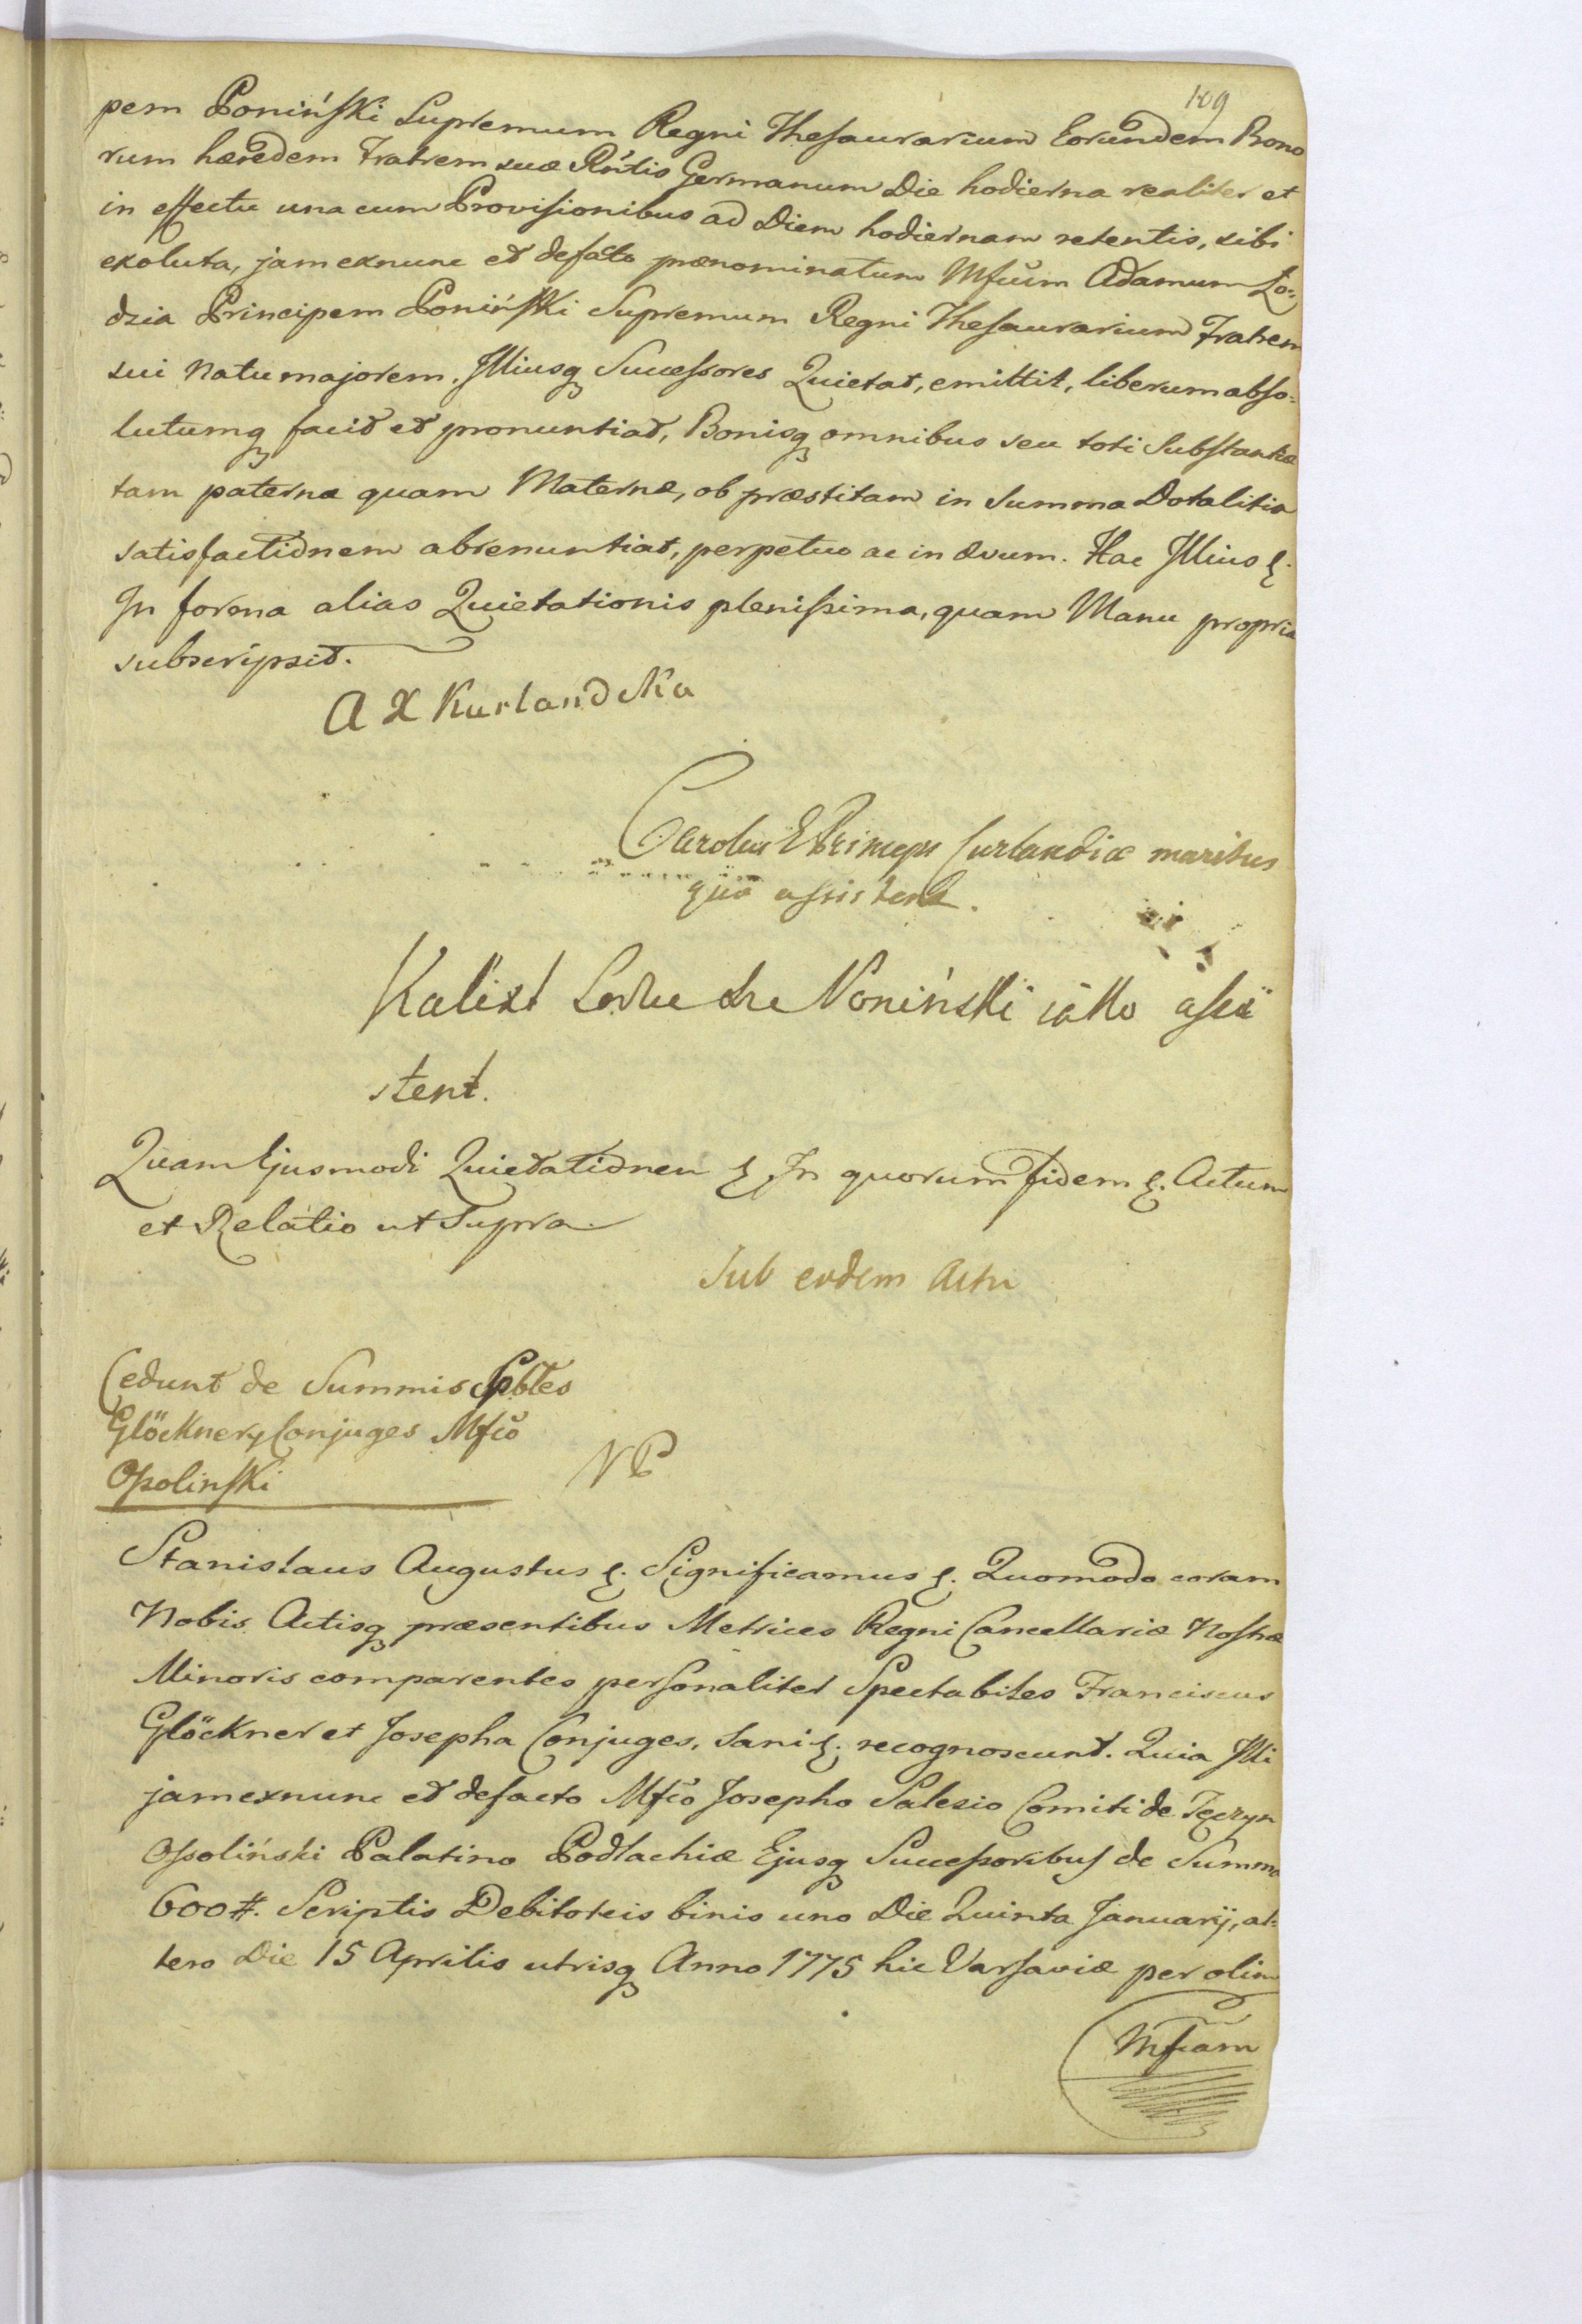 109
pem Poninski Supremum Regni Thesaurarium Eorundem Bono
rum hæredem Fratrem suæ Rntis Germanum Die hodierna realiter et
in effectu una cum Provisionibus ad Diem hodiernam retentis, sibi
exoluta, jam exnunc et defacto prænominatum Mfcum Adamum Lo=
dzia Principem Poniński Supremum Regni Thesaurarium Fratrem
sui Natu majorem, Illiusq Successores Quietat, emittit, liberum abso=
lutumq facit et pronuntiat, Bonisq omnibus seu toti Substantiæ
tam paternæ quam Maternæ, ob præstitam in Summa Dotalitia
satisfactionem abrenuntiat, perpetuo ac in ævum. Hac Illius &.
In forma alias Quietationis plenissima, quam Manu propria
subscripsit.
A X Kurlandska
Carolus E Princeps Curlandiæ maritus
qua assistens.
Kalixt Poniński iako assi
stent.
Quam Ejusmodi Quietationem & In quorum fidem &. Actum
et Relatio ut Supra
Sub eodem Actu
Cedunt de Summis Spbles
Glöcknery Conjuges Mfco
Ossolinski
NP
Stanislaus Augustus &. Significamus &. Quomodo coram
Nobis Actisq præsentibus Metrices Regni Cancellariæ Nostræ
Minoris comparentes personaliter Spectabiles Franciscus
Glöckner et Josepha Conjuges, Sani &. recognoscunt. Quia Illi
jam exnunc et defacto Mfco Josepho Salesio Comiti de Tęczyn
Ossoliński Palatino Podlachiæ Ejusq Successoribus de Summa
600 #. Scriptis Debitoreis binis uno Die Quinta Januarij, al=
tero Die 15 Aprilis utrisq Anno 1775 hic Varsaviæ per olim
Mfcam